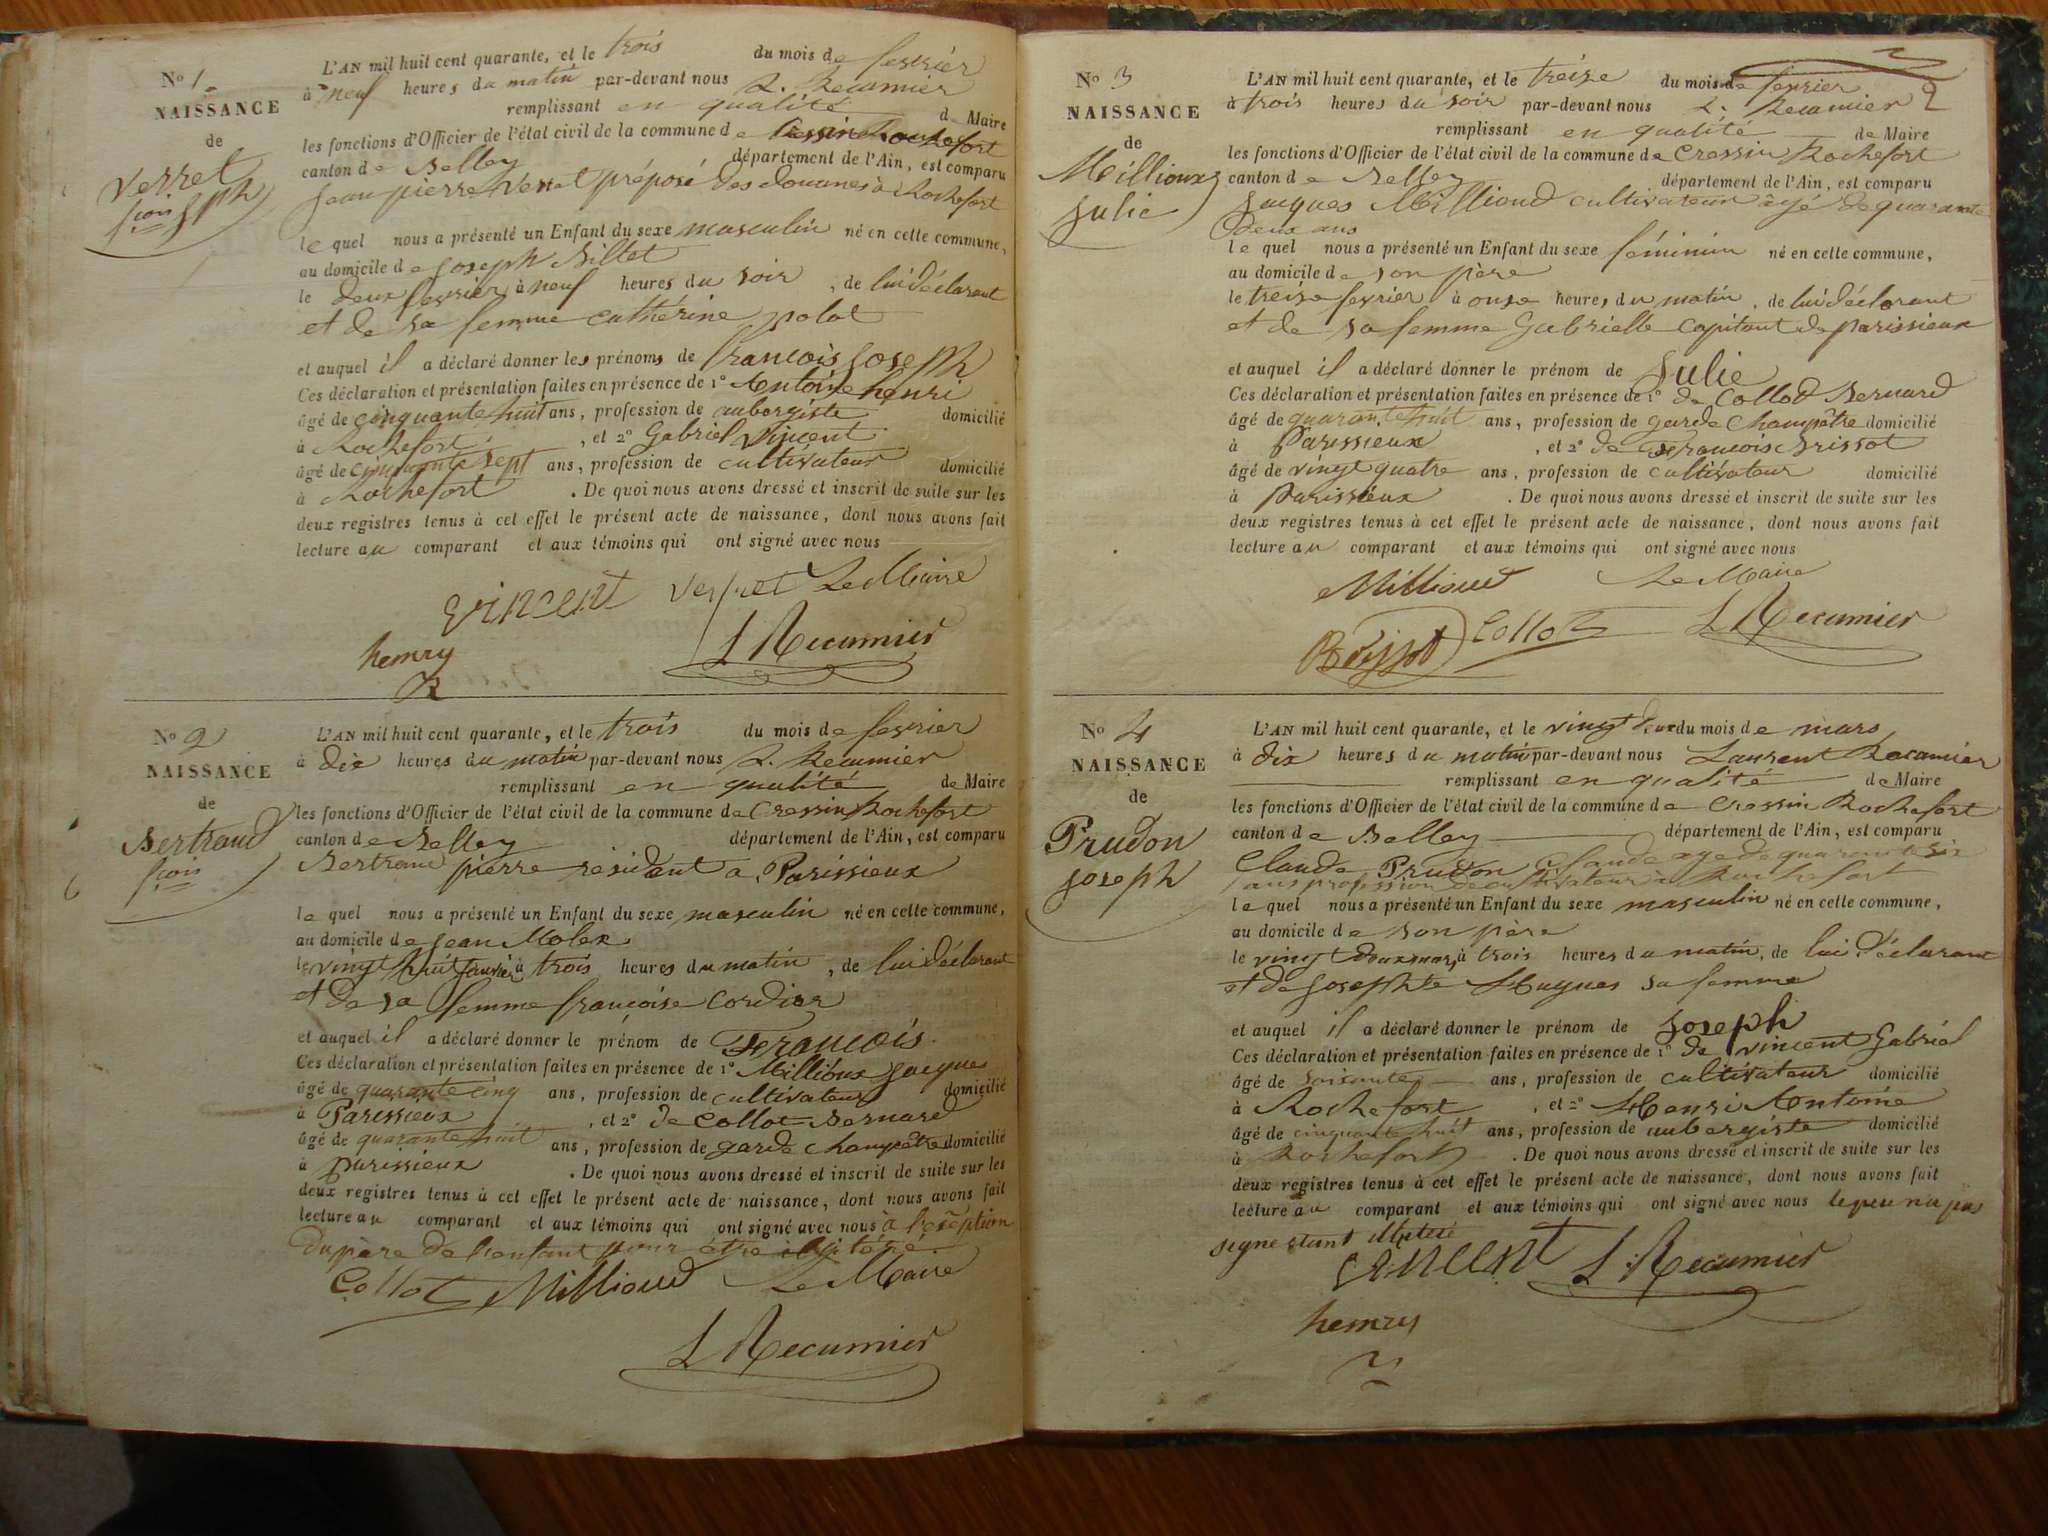 N° 1
NAISSANCE
de
Verret
fçois Jph
L'AN mil huit cent quarante, et le trois du mois de fevrier
à neuf heures du matin par-devant nous L. Recamier
remplissant en qualité de Maire
les fonctions d'Officier de l'état civil de la commune de Cressin Rochefort
canton de Belley département de l'Ain, est comparu
Jean pierre Verret préposé des douanes à Rochefort
le quel nous a présenté un Enfant du sexe masculin né en cette commune,
au domicile de Joseph Billet
le deux fevrier à neuf heures du soir, de lui déclarant
et de sa femme cathérine polat
et auquel il a déclaré donner les prénoms de francois Joseph
Ces déclaration et présentation faites en présence de 1° Antoine henri
âgé de cinquante huit ans, profession de aubergiste domicilié
à Rochefort, et 2° Gabriel Vincent
âgé de cinquante sept ans, profession de cultivateur domicilié
à Rochefort. De quoi nous avons dressé et inscrit de suite sur les
deux registres tenus à cet effet le présent acte de naissance, dont nous avons fait
lecture au comparant et aux témoins qui ont signé avec nous
Vincent Verret Le Maire
henry L Recamier
N° 2
NAISSANCE
de
Bertrand
fçois
L'AN mil huit cent quarante, et le trois du mois de fevrier
à dix heures du matin par-devant nous L. Recamier
remplissant en qualité de Maire
les fonctions d'Officier de l'état civil de la commune de Cressin Rochefort
canton de Belley département de l'Ain, est comparu
Bertrand pierre résidant a Parissieux
le quel nous a présenté un Enfant du sexe masculin né en cette commune,
au domicile de Jean Molex
le vingt huit Janvier à trois heures du matin, de lui déclarant
et de sa femme françoise Cordier
et auquel il a déclaré donner le prénom de François
Ces déclaration et présentation faites en présence de 1° Millioux Jacques
âgé de quarante cinq ans, profession de cultivateur domicilié
à Parissieux, et 2° de Collot Bernard
âgé de quarante huit ans, profession de garde champêtre domicilié
à parissieux. De quoi nous avons dressé et inscrit de suite sur les
deux registres tenus à cet effet le présent acte de naissance, dont nous avons fait
lecture au comparant et aux témoins qui ont signé avec nous à l'exéption
du père de l'enfant pour être
Collot Millioud Le Maire
L Recamier
2
N° 3
NAISSANCE
de
Millioux
Julie
L'AN mil huit cent quarante, et le treize du mois de fevrier
à trois heures du soir par-devant nous L. Recamier
remplissant en qualité de Maire
les fonctions d'Officier de l'état civil de la commune de Cressin Rochefort
canton de Belley département de l'Ain, est comparu
Jacques Millioud cultivateur âgé de quarante
deux ans
le quel nous a présenté un Enfant du sexe féminin né en cette commune,
au domicile de son père
le treize fevrier à onze heures du matin, de lui déclarant
et de sa femme Gabrielle Capitant de parissieux
et auquel il a déclaré donner le prénom de Julie
Ces déclaration et présentation faites en présence de 1° de Collod Bernard
âgé de quarante huit ans, profession de garde champêtre domicilié
à Parissieux, et 2° de Francois Brissot
âgé de vingt quatre ans, profession de cultivateur domicilié
à parissieux. De quoi nous avons dressé et inscrit de suite sur les
deux registres tenus à cet effet le présent acte de naissance, dont nous avons fait
lecture au comparant et aux témoins qui ont signé avec nous
Millioud Le Maire
Brissot Collot L Recamier
N° 4
NAISSANCE
de
Prudon
Joseph
L'AN mil huit cent quarante, et le vingt deux du mois de mars
à dix heures du matin par-devant nous Laurent Recamier
remplissant en qualité de Maire
les fonctions d'Officier de l'état civil de la commune de Cressin Rochefort
canton de Belley département de l'Ain, est comparu
Claude Prudon Claude age de quarante six
ans profession de cultivateur à Rochefort
le quel nous a présenté un Enfant du sexe masculin né en cette commune,
au domicile de son père
le vingt deux mars à trois heures du matin, de lui déclarant
et de Josephte Hugues sa femme
et auquel il a déclaré donner le prénom de Joseph
Ces déclaration et présentation faites en présence de 1° de Vincent Gabriel
âgé de soixante ans, profession de cultivateur domicilié
à Rochefort, et 2° Henri Antoine
âgé de cinquante huit ans, profession de aubergiste domicilié
à Rochefort. De quoi nous avons dressé et inscrit de suite sur les
deux registres tenus à cet effet le présent acte de naissance, dont nous avons fait
lecture au comparant et aux témoins qui ont signé avec nous le peu n'a pas
signe etant
Vincent L. Recamier
henry